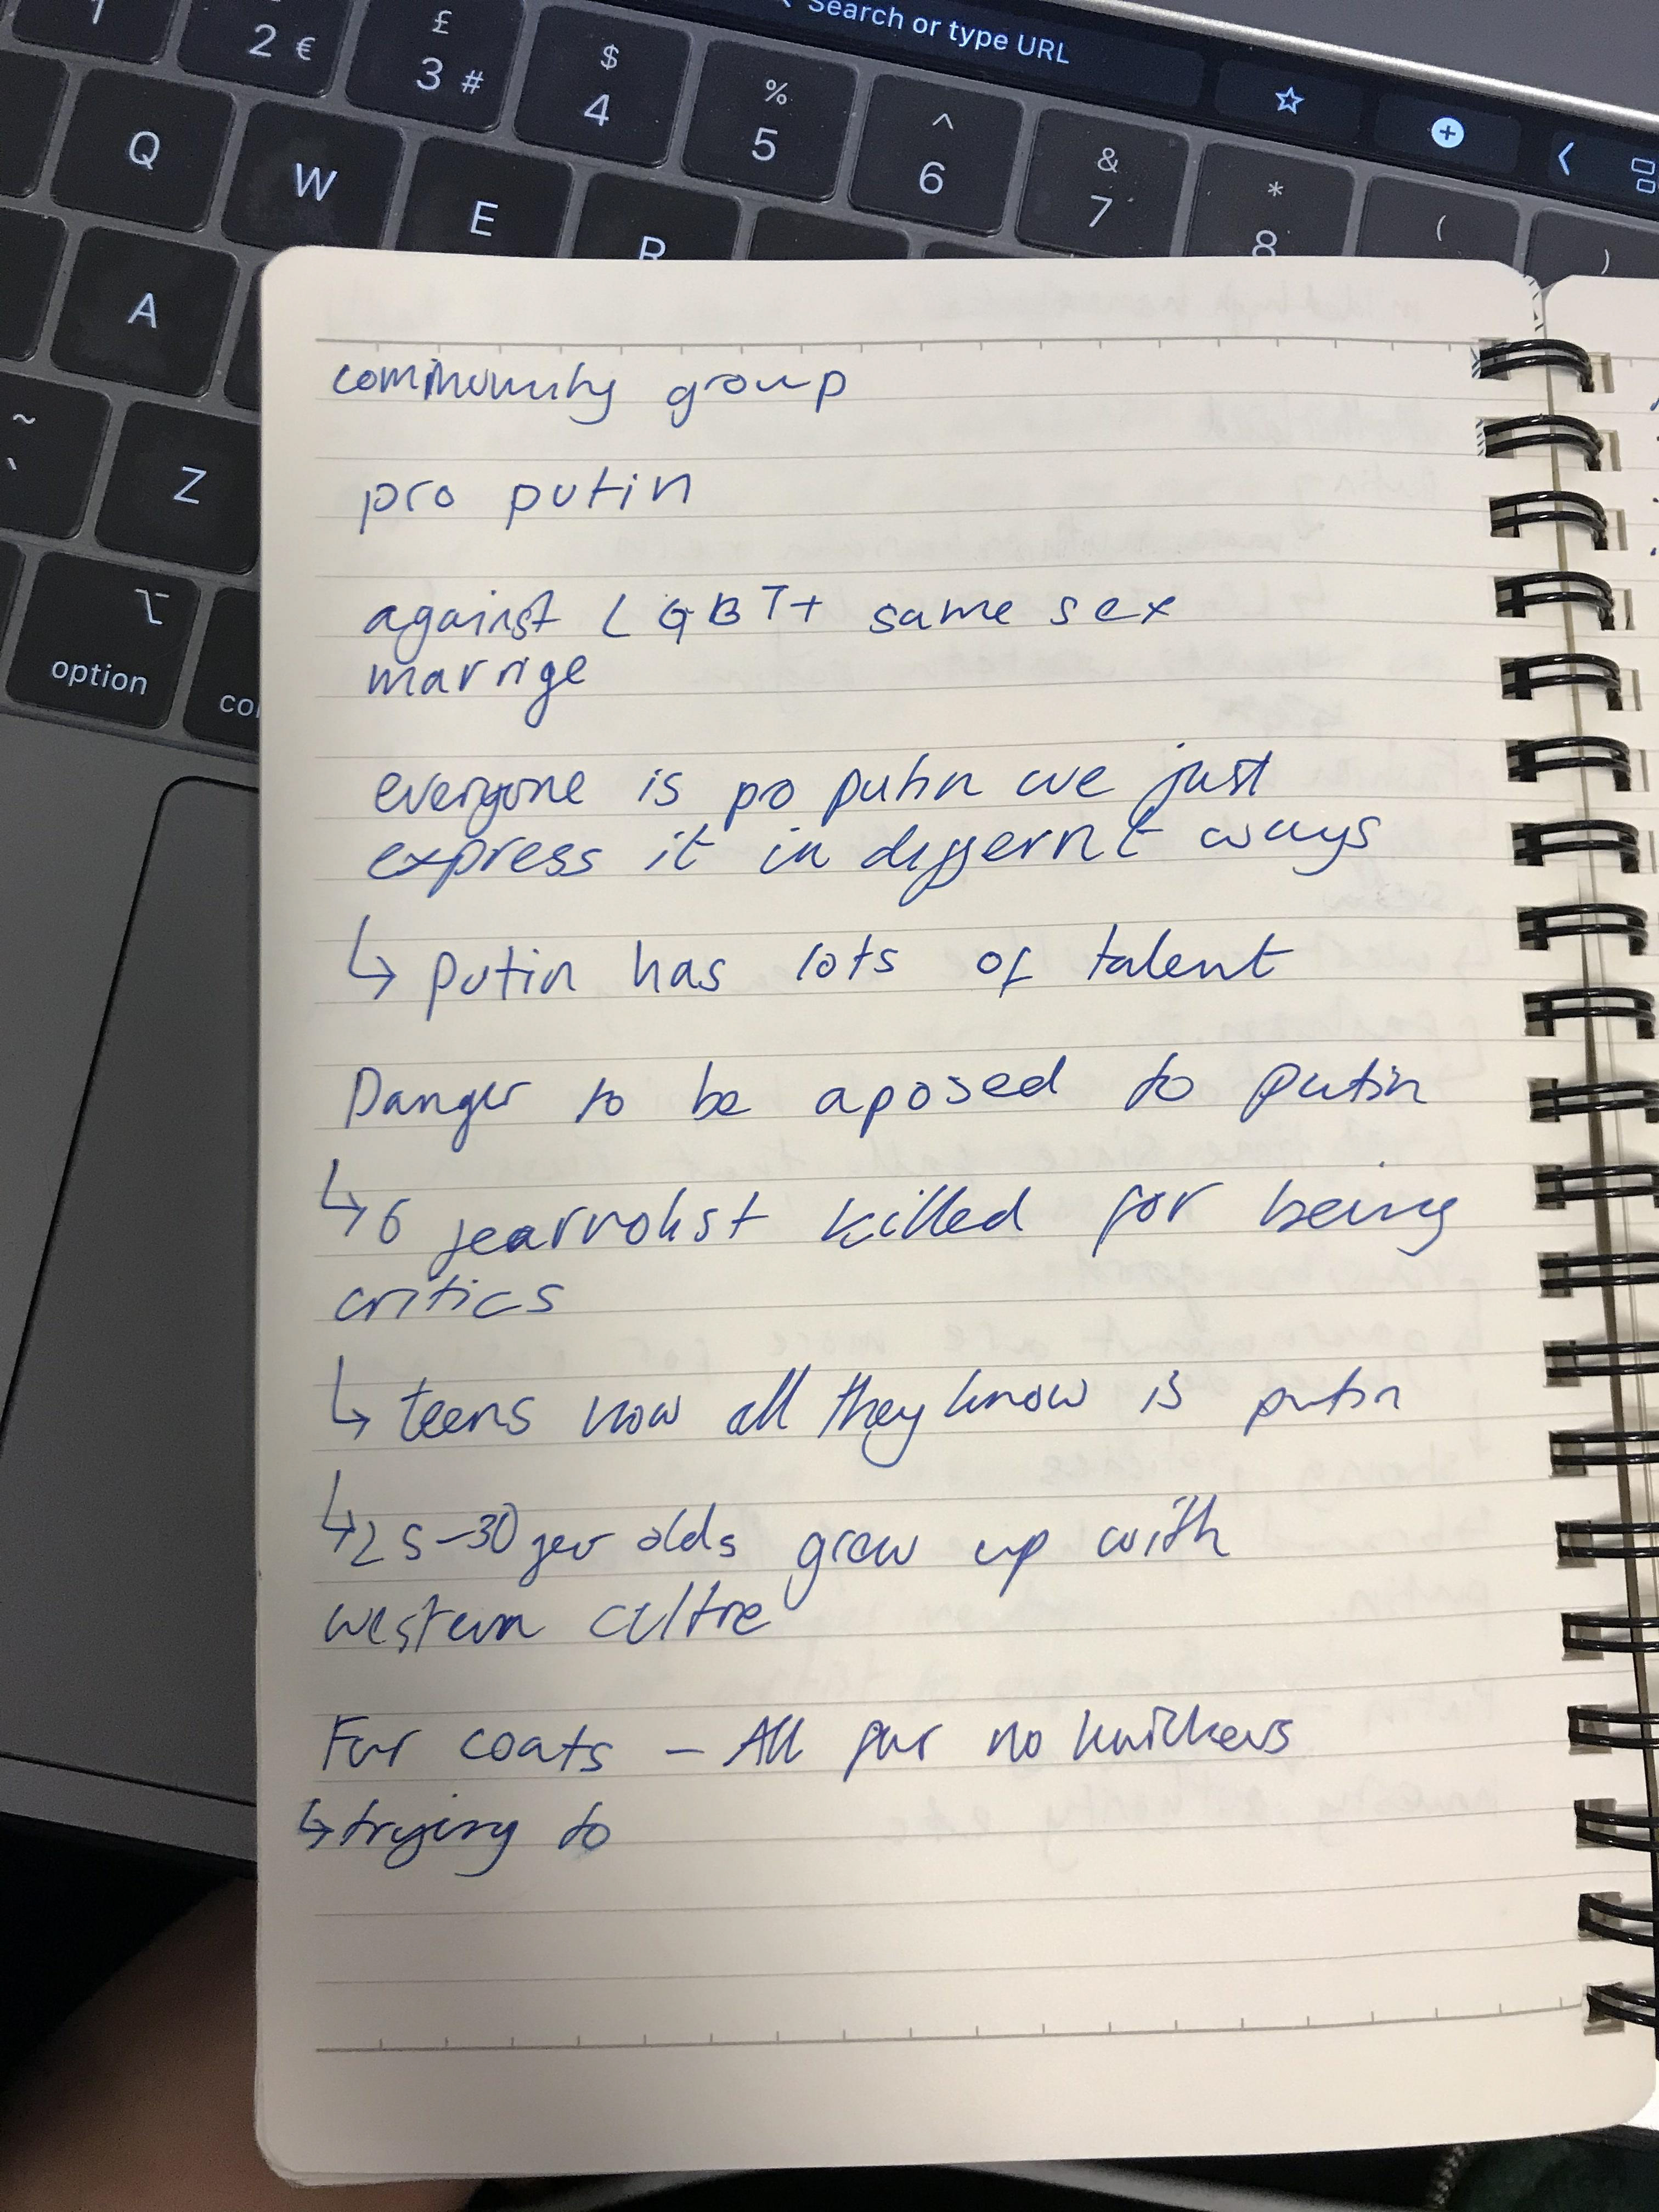 Search or type URL
1
2 €
£
3 #
$
4
%
5
^
6
&
7
*
8
(
)
Q
W
E
R
A
~
`
Z
option
co
community group
pro putin
against LGBT+ same sex
marrige
everyone is po putin we just
express it in differnt ways
↳ putin has lots of talent
Danger to be aposed to putin
↳ 6 jearnolist killed for being
critics
↳ teens now all they know is putin
↳ 25-30 yer olds grew up with
western cultre
Fur coats – All fur no knickers
↳ trying to